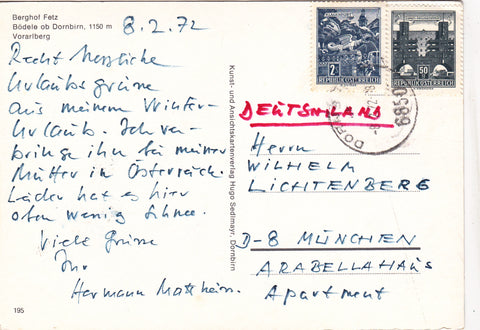 Berghof Fetz
Bödele ob Dornbirn, 1150 m
Vorarlberg
8.2.72
Recht herzliche
Urlaubsgrüsse
aus meinem Winter-
Urlaub. Ich ver-
bringe ihn bei meiner
Mutter in Österreich.
Leider hat es hier
oben wenig Schnee.
Viele Grüsse
Ihr
Hermann
195
Kunst- und Ansichtskartenverlag Hugo Sedlmayr, Dornbirn
2S
REPUBLIK ÖSTERREICH
50
REPUBLIK ÖSTERREICH
6850
DEUTSCHLAND
Herrn
WILHELM
LICHTENBERG
D-8 MÜNCHEN
ARABELLAHAUS
Apartment